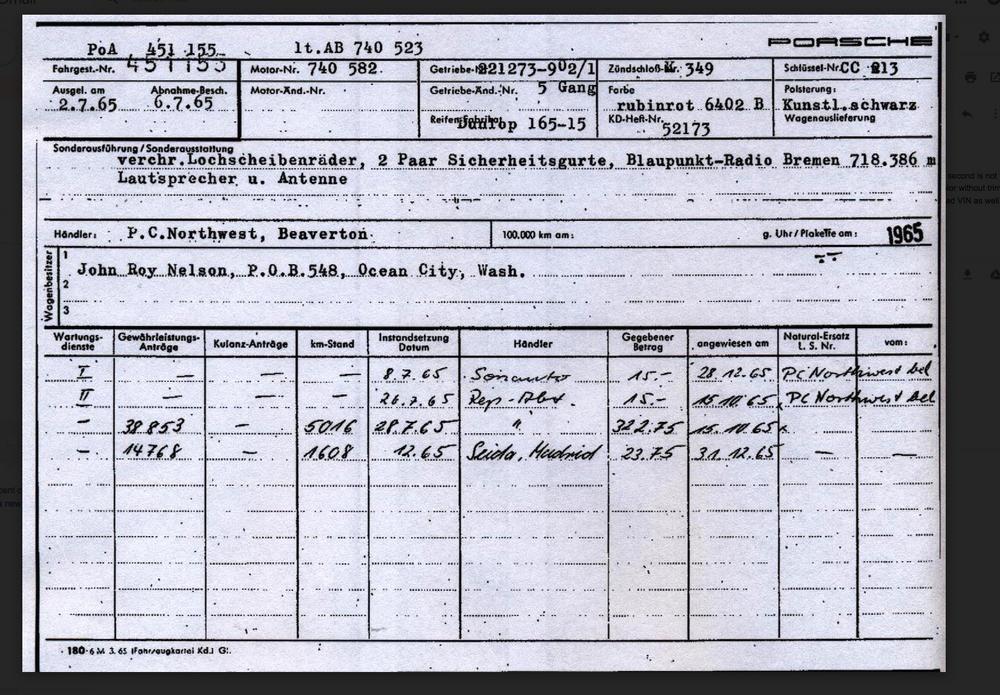 PoA 451 155 lt.AB 740 523 PORSCHE
Fahrgest.-Nr. 451155 Motor-Nr. 740 582 Getriebe-Nr. 221273-902/1 Zündschloß-Nr. 349 Schlüssel-Nr. CC 213
Ausgel. am Abnahme-Besch. Motor-Änd.-Nr. Getriebe-Änd.-Nr. 5 Gang Farbe Polsterung:
2.7.65 6.7.65 rubinrot 6402 B Kunstl.schwarz
Reifenfabrikat Dunlop 165-15 KD-Heft-Nr. 52173 Wagenauslieferung
Sonderausführung / Sonderausstattung
verchr.Lochscheibenräder, 2 Paar Sicherheitsgurte, Blaupunkt-Radio Bremen 718.386 m
Lautsprecher u. Antenne
Händler: P.C.Northwest, Beaverton 100.000 km am: g. Uhr / Plakette am: 1965
Wagenbesitzer
1 John Roy Nelson, P.O.B.548, Ocean City, Wash.
2
3
Wartungs-dienste Gewährleistungs-Anträge Kulanz-Anträge km-Stand Instandsetzung Datum Händler Gegebener Betrag angewiesen am Natural-Ersatz L. S. Nr. vom:
I — — — 8.7.65 Sonauto 15.- 28.12.65 PC Northwest bel
II — — — 26.7.65 Rep-Abt. 15.- 15.10.65 PC Northwest bel
— 38853 — 5016 28.7.65 " 322.75 15.10.65
— 14768 — 1608 12.65 Seida, Madrid 23.75 31.12.65 — —
180·6 M 3. 65 (Fahrzeugkartei Kd.) G:
second is not
or without trim
ed VIN as well